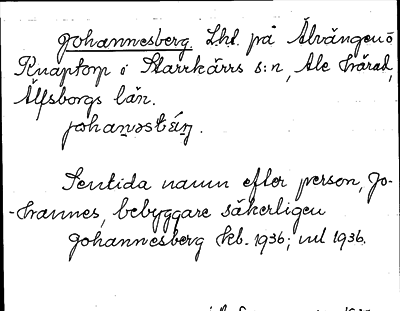 Johannesberg. Lht. på Älvängen o
Knaptorp i Starrkärrs s:n, Ale härad,
Älfsborgs län.
johanəstáŋ.
Sentida namn efter person, Jo-
-hannes, bebyggare säkerligen
Johannesberg kb. 1936; ml 1936.